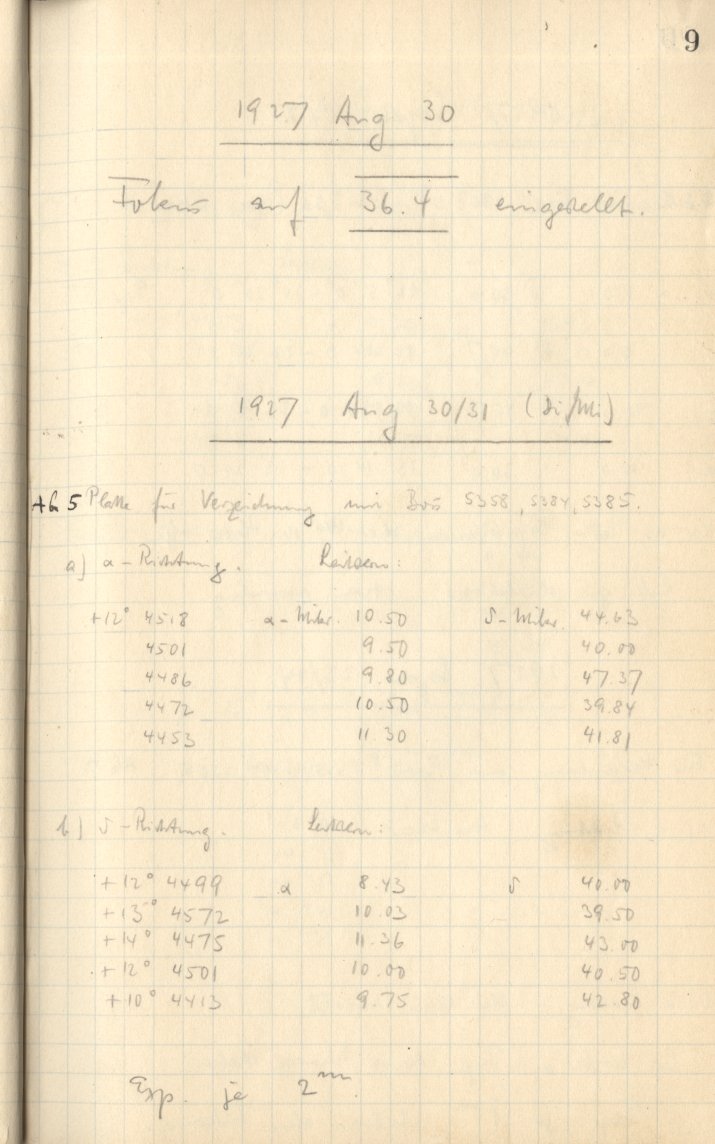 9
1927 Aug 30
Fokus auf 36.4 eingestellt.
1927 Aug 30/31 (Di/Mi)
Ab 5 Platte für Verzeichnung mit Boss 5358, 5384, 5385.
a) α-Richtung. Leitstern:
+12° 4518 α-Mikr. 10.50 δ-Mikr. 44.63
4501 9.50 40.00
4486 9.80 47.37
4472 10.50 39.84
4453 11.30 41.81
b) δ-Richtung. Leitstern:
+12° 4499 α 8.43 δ 40.00
+13° 4572 10.03 39.50
+14° 4475 11.36 43.00
+12° 4501 10.00 40.50
+10° 4413 9.75 42.80
Exp. je 2ᵐ